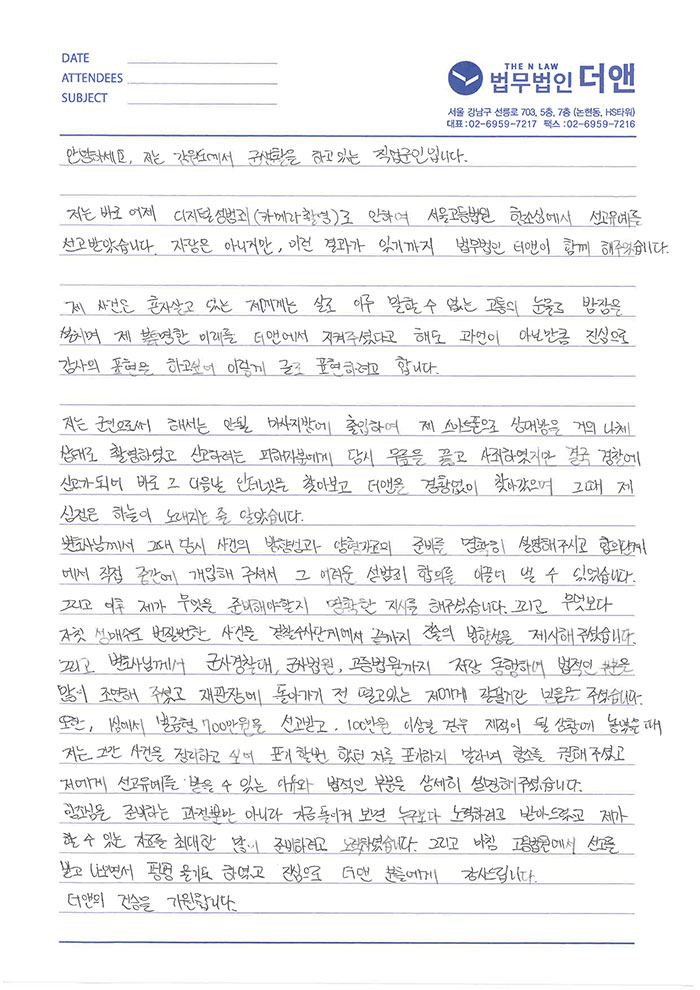 DATE
ATTENDEES
SUBJECT
THE N LAW
법무법인 더앤
서울 강남구 선릉로 703, 5층, 7층 (논현동, HS타워)
대표:02-6959-7217 팩스:02-6959-7216
안녕하세요, 저는 강원도에서 군생활을 하고있는 직업군인입니다.
저는 바로 어제 디지털성범죄(카메라촬영)로 인하여 서울고등법원 항소심에서 선고유예를
선고받았습니다. 자랑은 아니지만, 이런 결과가 있기까지 법무법인 더앤이 함께 해주었습니다.
제 사건은 혼자살고 있는 저에게는 실로 이루 말할 수 없는 고통의 눈물로 밤잠을
설치며 제 불투명한 미래를 더앤에서 지켜주셨다고 해도 과언이 아닌만큼 진심으로
감사의 표현은 하고싶어 이렇게 글로 표현하려고 합니다.
저는 군인으로써 해서는 안될 마사지방에 출입하여 제 스마트폰으로 상대방을 거의 나체
상태로 촬영하였고 신고하려는 피해자분에게 당시 무릎을 꿇고 사죄하였지만 결국 경찰에
신고가되어 바로 그 다음날 인터넷을 찾아보고 더앤을 경황없이 찾아갔으며 그때 제
심정은 하늘이 노래지는 줄 알았습니다.
변호사님께서 그때 당시 사건의 방향성과 양형자료의 준비를 명확히 설명해주시고 합의단계
에서 직접 중간에 개입해 주셔서 그 어려운 성범죄 합의를 이끌어 낼 수 있었습니다.
그리고 이후 제가 무엇을 준비해야할지 명확한 지시를 해주셨습니다. 그리고 무엇보다
자칫 성매수로 번질뻔한 사건을 경찰수사단계에서 끝까지 진술의 방향성을 제시해 주셨습니다.
그리고 변호사님께서 군사경찰대, 군사법원, 고등법원까지 저랑 동행하며 법적인 부분을
많이 조언해 주셨고 재판장에 들어가기 전 떨고있는 저에게 잘될거란 믿음을 주셨습니다.
또한, 1심에서 벌금형 700만원을 선고받고, 100만원 이상일 경우 제적이 될 상황에 놓였을 때
저는 그만 사건을 정리하고 싶어 포기 할번 했던 저를 포기하지 말라며 항소를 권해 주셨고
저에게 선고유예를 받을 수 있는 이유와 법적인 부분을 상세히 설명해주셨습니다.
항소심을 준비하는 과정뿐만 아니라 지금 돌이켜 보면 누구보다 노력하려고 받아드렸고 제가
할 수 있는 자료를 최대한 많이 준비하려고 노력하였습니다. 그리고 마침 고등법원에서 선고를
받고 나오면서 펑펑 울기도 하였고 진심으로 더앤 분들에게 감사드립니다.
더앤의 건승을 기원합니다.